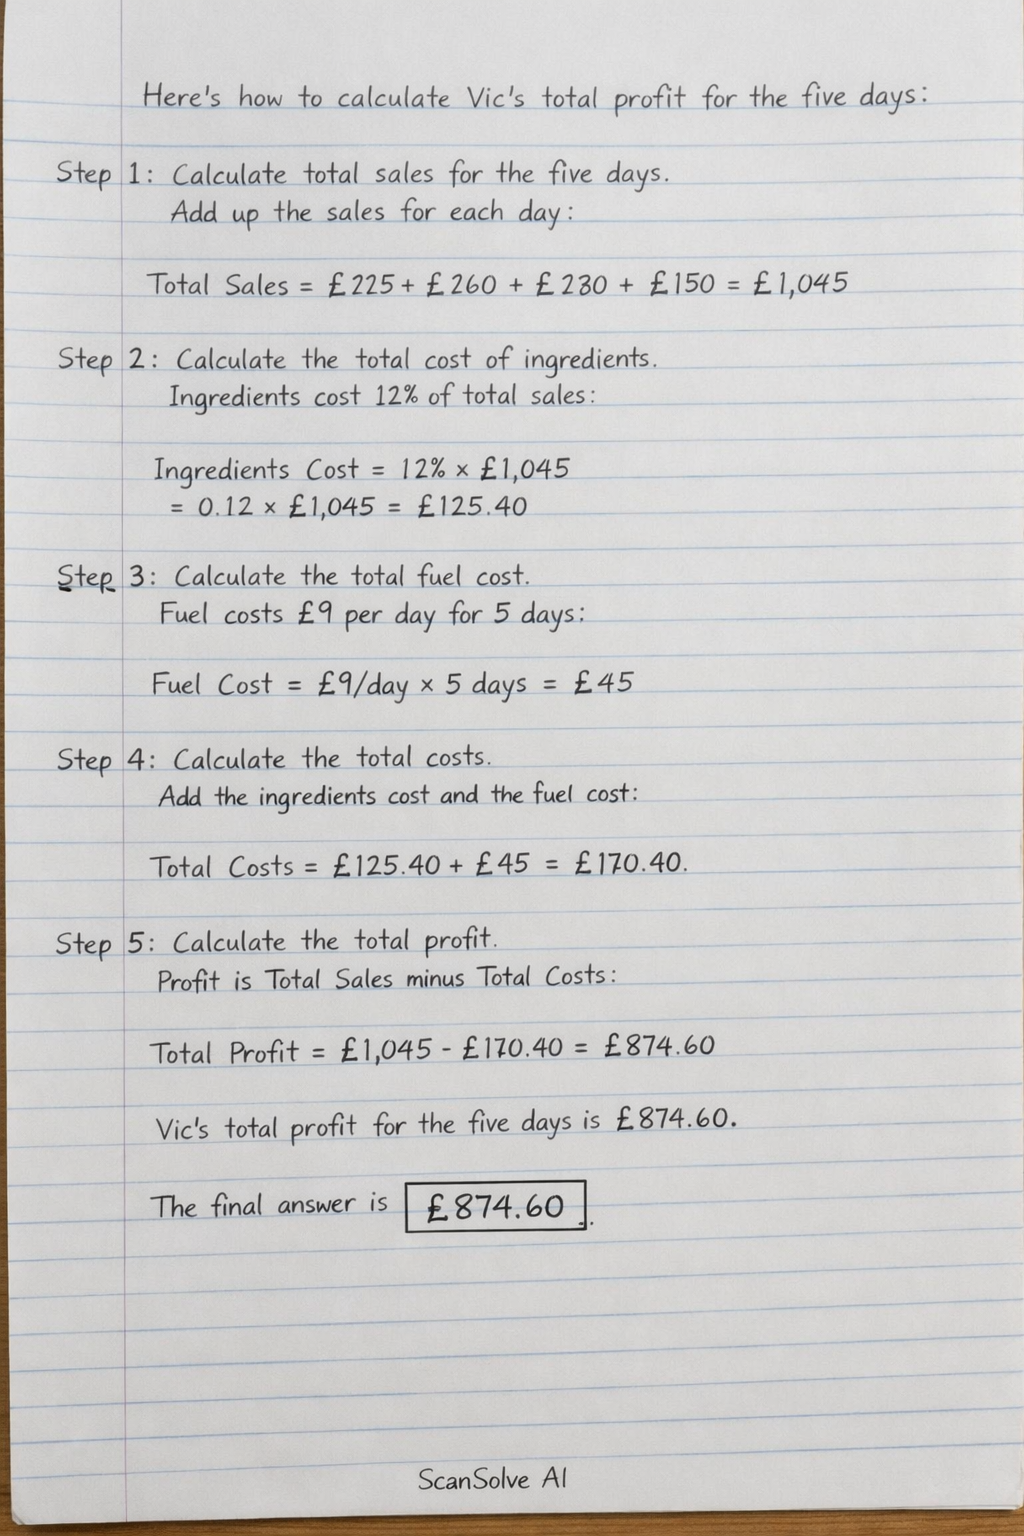 Here's how to calculate Vic's total profit for the five days:
Step 1: Calculate total sales for the five days.
Add up the sales for each day:
Total Sales = £225 + £260 + £230 + £150 = £1,045
Step 2: Calculate the total cost of ingredients.
Ingredients cost 12% of total sales:
Ingredients Cost = 12% × £1,045
= 0.12 × £1,045 = £125.40
Step 3: Calculate the total fuel cost.
Fuel costs £9 per day for 5 days:
Fuel Cost = £9/day × 5 days = £45
Step 4: Calculate the total costs.
Add the ingredients cost and the fuel cost:
Total Costs = £125.40 + £45 = £170.40.
Step 5: Calculate the total profit.
Profit is Total Sales minus Total Costs:
Total Profit = £1,045 - £170.40 = £874.60
Vic's total profit for the five days is £874.60.
The final answer is £874.60.
ScanSolve AI